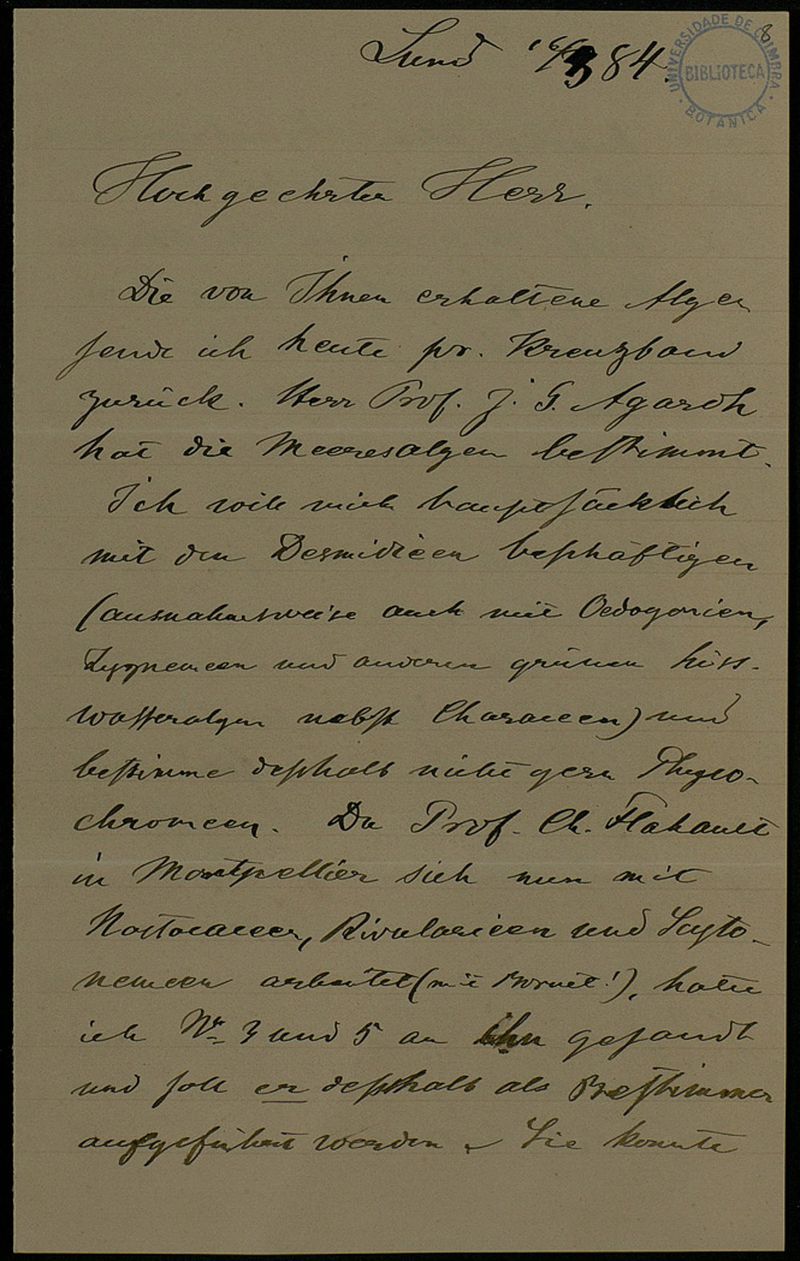 Lund 16/3 84.
8
UNIVERSIDADE DE COIMBRA
BIBLIOTECA
BOTANICA
Hochgeehrter Herr.
Die von Ihnen erhaltene Algen
sende ich heute pr. Kreuzband
zurück. Herr Prof. J. G. Agardh
hat die Meeresalgen bestimmt.
Ich will mich hauptsächlich
mit den Desmidieen beschäftigen
(ausnahmsweise auch mit Oedogonien,
Zygnemeen und anderen grünen Süss-
wasseralgen nebst Characeen) und
bestimme desshalb nicht gern Phyco-
chromeen. Da Prof. Ch. Flahault
in Montpellier sich nun mit
Nostocaceen, Rivularieen und Scyto-
nemeen arbeitet (mit Bornet!), hatte
ich Nr 3 und 5 an ihn gesandt
und soll er desshalb als Bestimmer
aufgeführt werden. Sie konnte